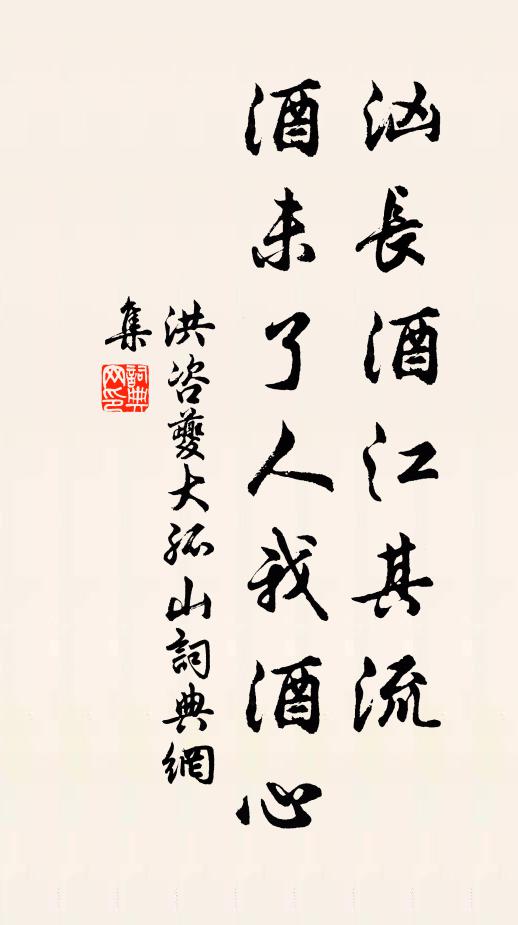 汹長酒江其流
酒未了人我酒心
洪咨夔大孤山詞典網
集
詞典網印